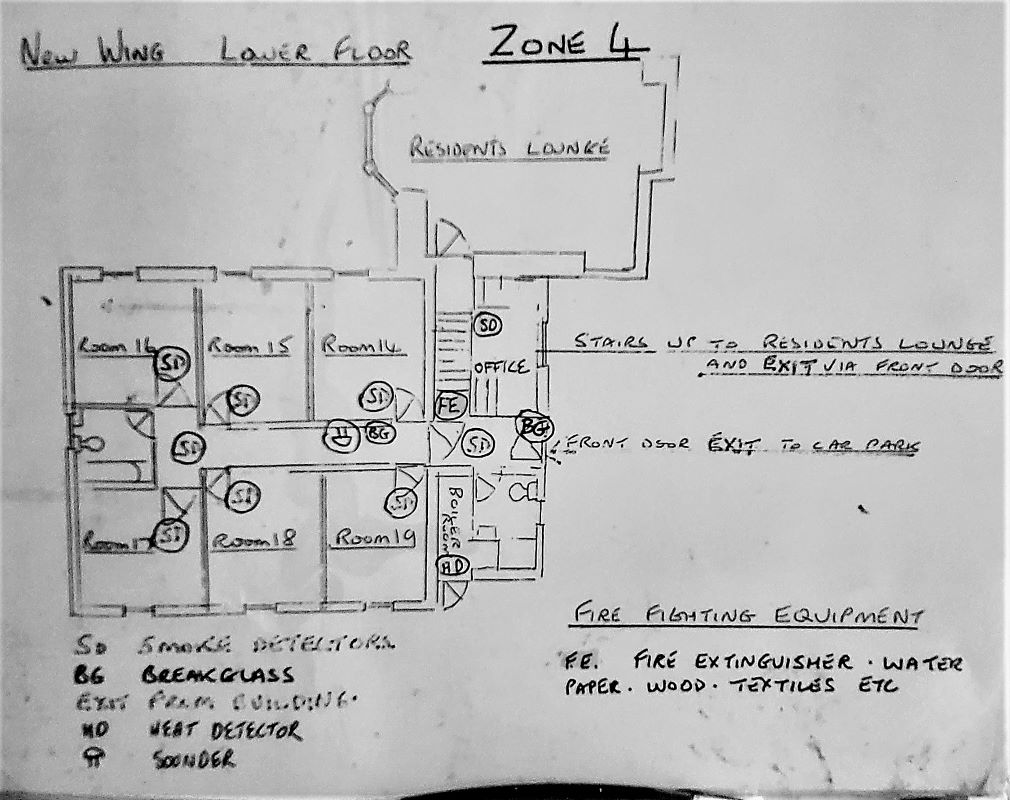 NEW WING LOWER FLOOR
ZONE 4
RESIDENTS LOUNGE
Room 16
Room 15
Room 14
SD
SD
SD
SD
OFFICE
FE
STAIRS UP TO RESIDENTS LOUNGE
AND EXIT VIA FRONT DOOR
SD
BG
SD
BG
FRONT DOOR EXIT TO CAR PARK
SD
SD
SD
Room 17
Room 18
Room 19
BOILER
ROOM
HD
SD SMOKE DETECTORS
BG BREAKGLASS
EXIT FROM BUILDING.
HD HEAT DETECTOR
SOUNDER
FIRE FIGHTING EQUIPMENT
F.E. FIRE EXTINGUISHER . WATER
PAPER . WOOD . TEXTILES ETC